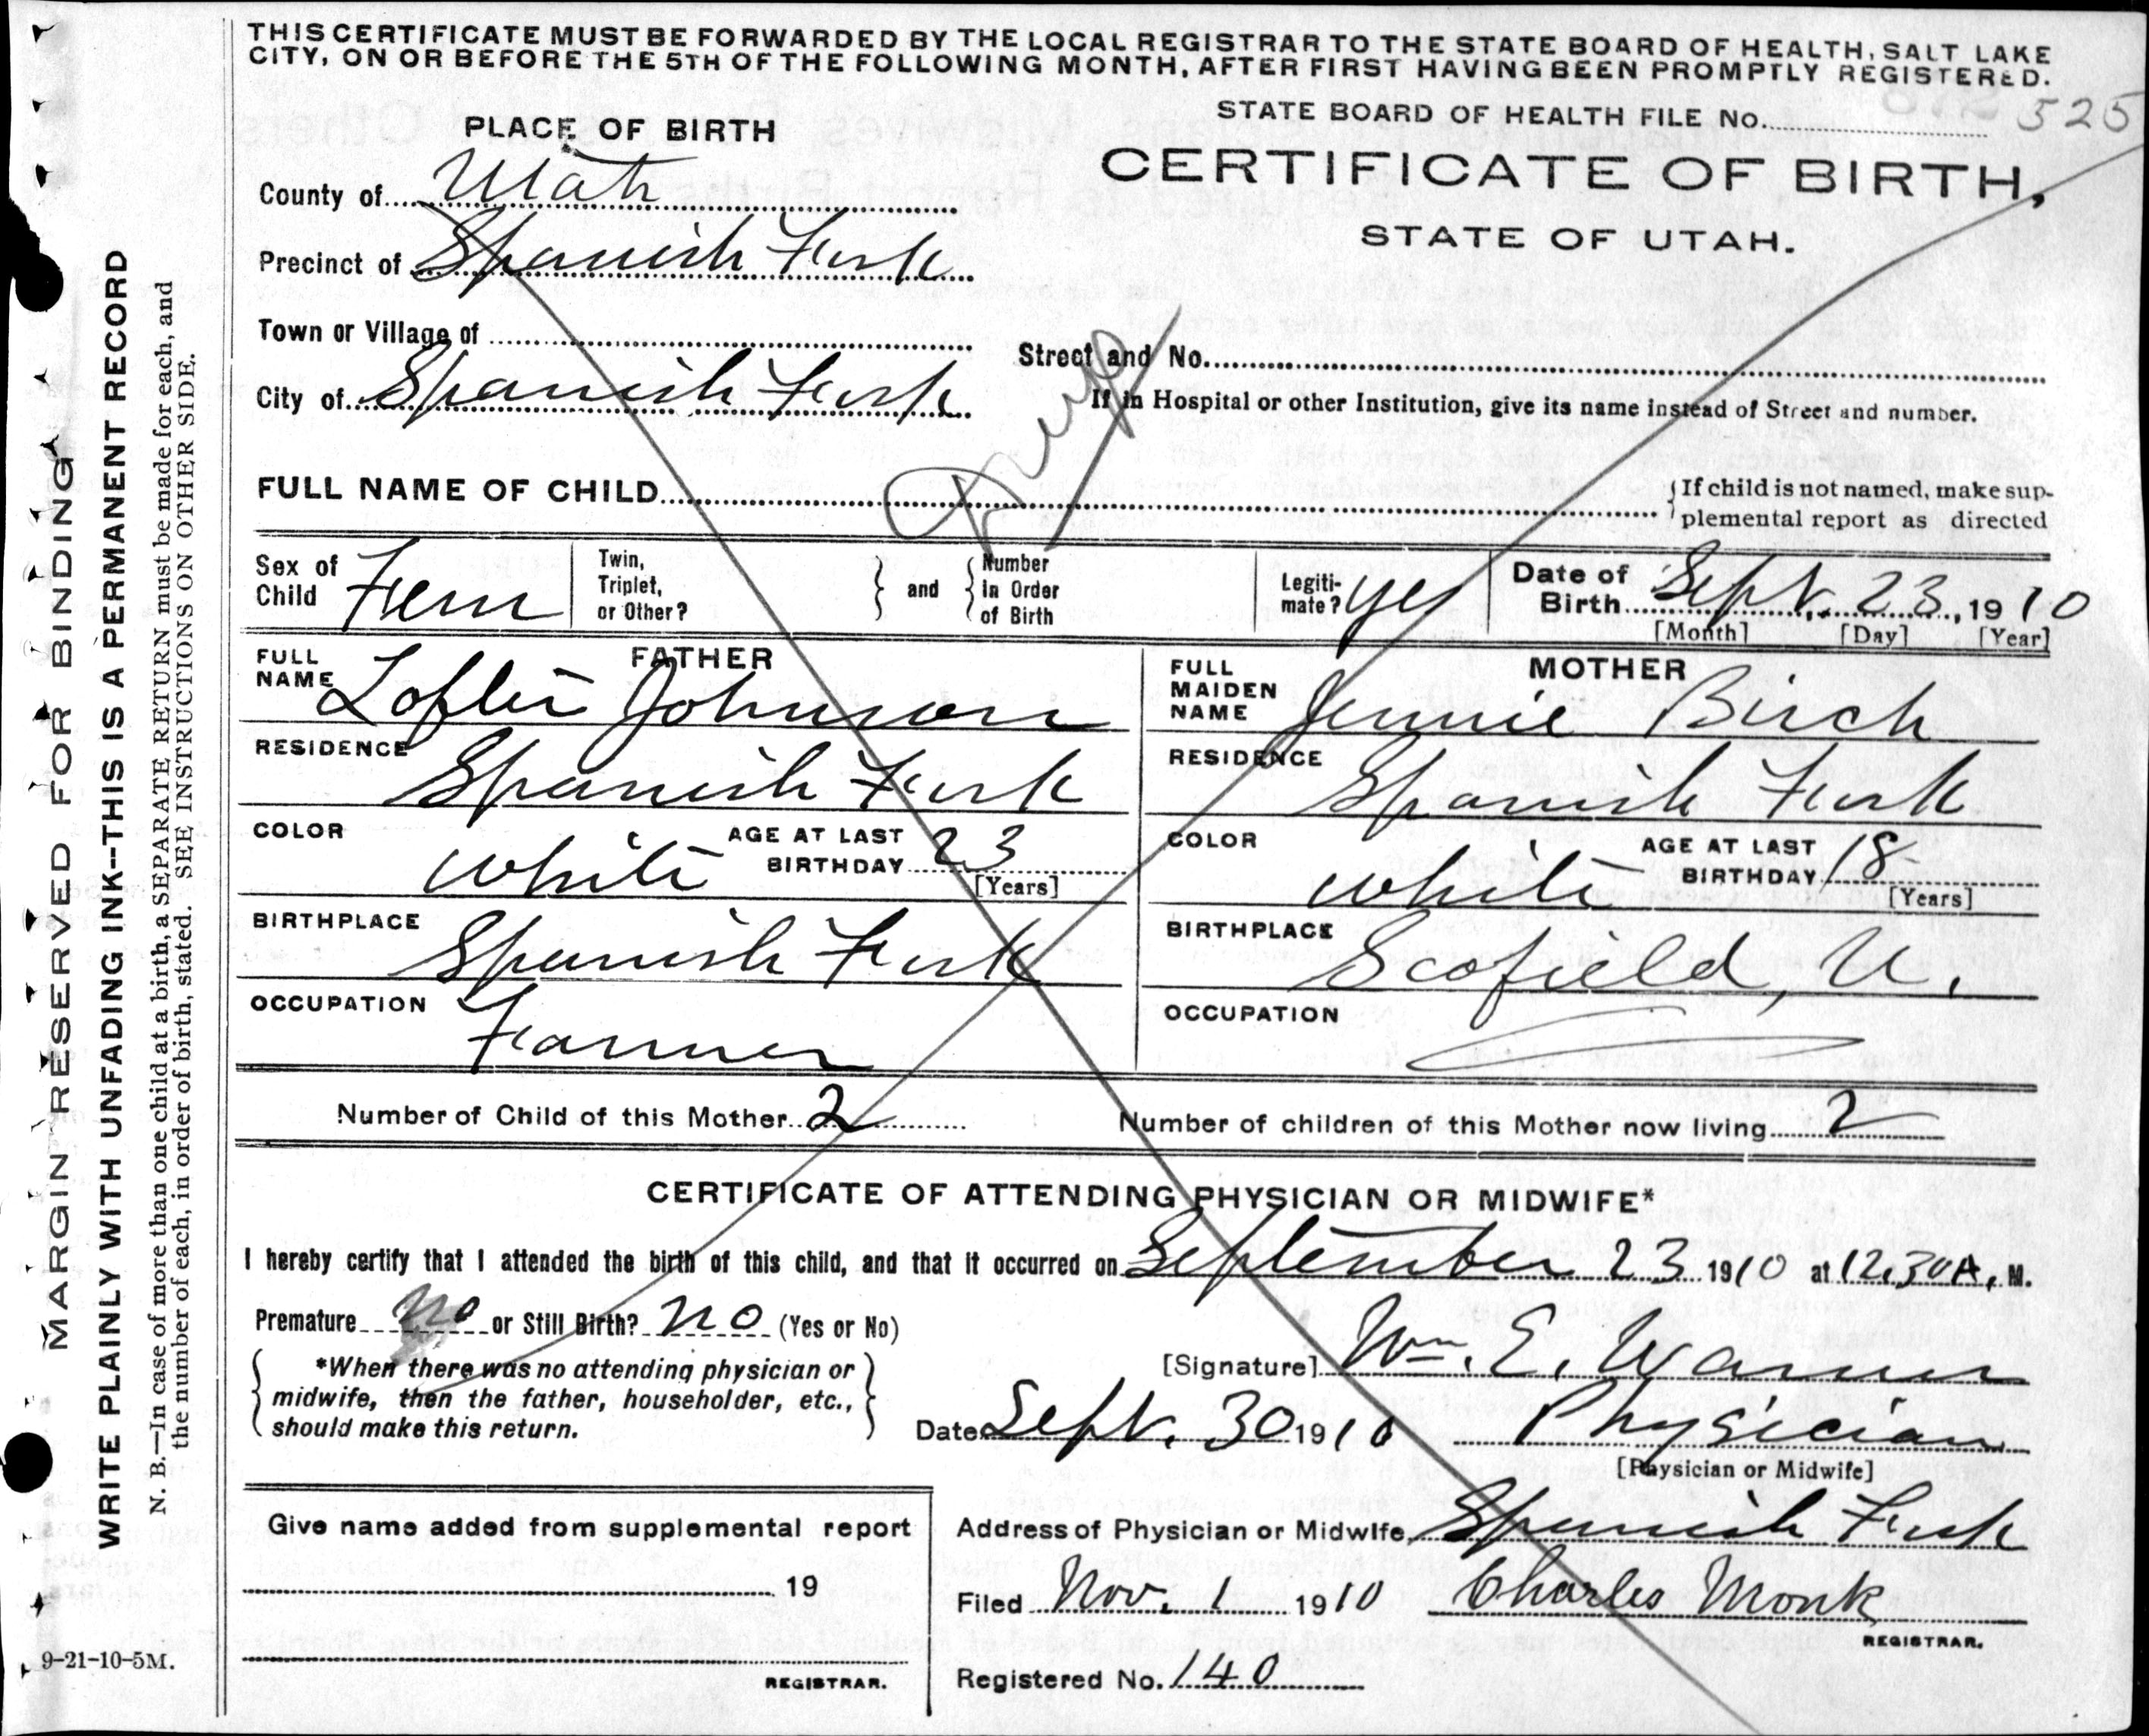 THIS CERTIFICATE MUST BE FORWARDED BY THE LOCAL REGISTRAR TO THE STATE BOARD OF HEALTH, SALT LAKE
CITY, ON OR BEFORE THE 5TH OF THE FOLLOWING MONTH, AFTER FIRST HAVING BEEN PROMPTLY REGISTERED.
STATE BOARD OF HEALTH FILE No. 525
PLACE OF BIRTH
CERTIFICATE OF BIRTH,
STATE OF UTAH.
County of Utah
Precinct of Spanish Fork
Town or Village of
Street and No.
City of Spanish Fork
If in Hospital or other Institution, give its name instead of Street and number.
Dup
FULL NAME OF CHILD
If child is not named, make sup-
plemental report as directed
Sex of Child Fem
Twin, Triplet, or Other? and Number In Order of Birth
Legiti-mate? yes
Date of Birth Sept. 23, 1910
[Month] [Day] [Year]
FATHER
FULL NAME Lofter Johnson
RESIDENCE Spanish Fork
COLOR White AGE AT LAST BIRTHDAY 23
[Years]
BIRTHPLACE Spanish Fork
OCCUPATION Farmer
MOTHER
FULL MAIDEN NAME Jennie Birch
RESIDENCE Spanish Fork
COLOR White AGE AT LAST BIRTHDAY 18
[Years]
BIRTHPLACE Scofield, U.
OCCUPATION
Number of Child of this Mother 2 Number of children of this Mother now living 2
CERTIFICATE OF ATTENDING PHYSICIAN OR MIDWIFE*
I hereby certify that I attended the birth of this child, and that it occurred on September 23 1910 at 12.30 A. M.
Premature no or Still Birth? no (Yes or No)
*When there was no attending physician or
midwife, then the father, householder, etc.,
should make this return.
[Signature] Wm. E. Warner
Date Sept. 30 1910 Physician
[Physician or Midwife]
Give name added from supplemental report
19
REGISTRAR.
Address of Physician or Midwife Spanish Fork
Filed Nov. 1 1910 Charles Monk
REGISTRAR.
Registered No. 140
9-21-10-5M.
MARGIN RESERVED FOR BINDING
WRITE PLAINLY WITH UNFADING INK--THIS IS A PERMANENT RECORD
N. B.—In case of more than one child at a birth, a SEPARATE RETURN must be made for each, and
the number of each, in order of birth, stated. SEE INSTRUCTIONS ON OTHER SIDE.